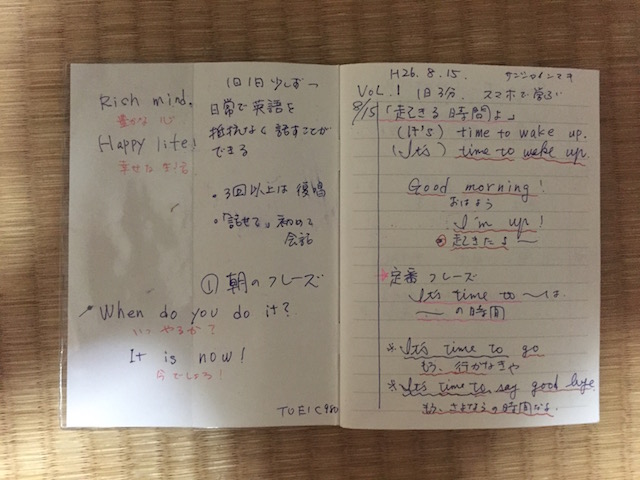 Rich mind.
豊かな心
Happy life!
幸せな生活
1日1日少しずつ
日常で英語を
抵抗なく話すことが
できる
・3回以上は復唱
・「話せる」初めて
会話
① 朝のフレーズ
When do you do it?
いつやるか?
It is now!
らでしょう!
TOEIC 980
H26.8.15.
VOL.1 1日3分. スマホで学ぶ
8/15「起きる時間よ」
(It's) time to wake up.
(It's) time to wake up.
Good morning!
おはよう
I'm up!
起きたよ〜
定番フレーズ
It's time to 〜は
〜の時間
※ It's time to go
もう、行かなきゃ
※ It's time to say good bye
もう、さよならの時間だよ